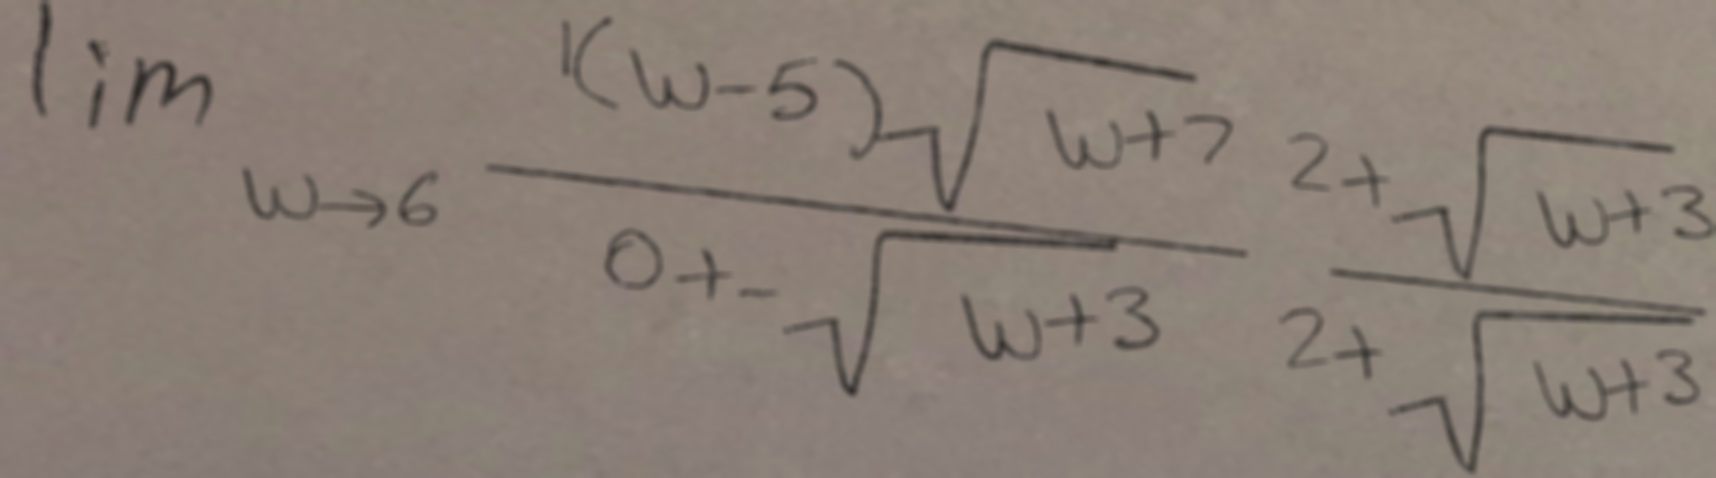 lim w→6 1(w-5)√w+7 / 0+-√w+3 2+√w+3 / 2+√w+3